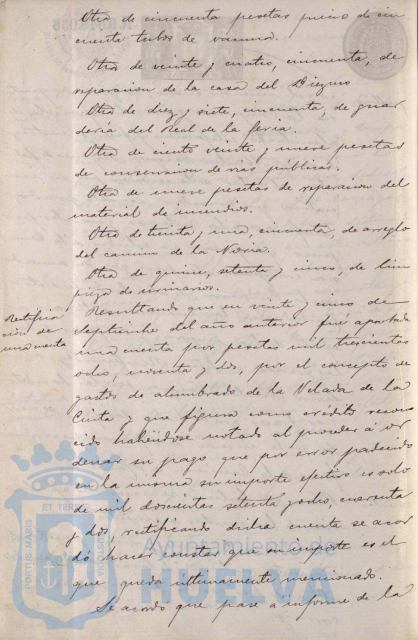 Otra de cincuenta pesetas precio de cin
cuenta tubos de vacuna.
Otra de veinte y cuatro, cincuenta, de
reparacion de la casa del Diezmo
Otra de diez y siete, cincuenta, de guar
dería del Real de la feria.
Otra de ciento veinte y nueve pesetas
de conservacion de vias públicas.
Otra de nueve pesetas de reparacion del
material de incendios.
Otra de treinta y una, cincuenta, de arreglo
del camino de la Noria.
Otra de quince, setenta y cinco, de lim
pieza de urinarios.
Rectifica
cion de
una cuenta
Resultando que en veinte y cinco de
Septiembre del año anterior fué aprobada
una cuenta por pesetas mil trescientas
ocho, noventa y dos, por el concepto de
gastos de alumbrado de la Velada de la
Cinta y que figura como crédito recono
cido habiéndose notado al proceder á or
denar su pago que por error padecido
en la misma su importe efectivo es solo
de mil doscientas setenta y ocho, cuarenta
y dos, rectificando dicha cuenta se acor
dó hacer constar que su importe es el
que queda ultimamente mencionado.
Se acordó que pase á informe de la
PORTUS MARIS
ET TERRAE
CUSTODIA
Ayuntamiento de
HUELVA